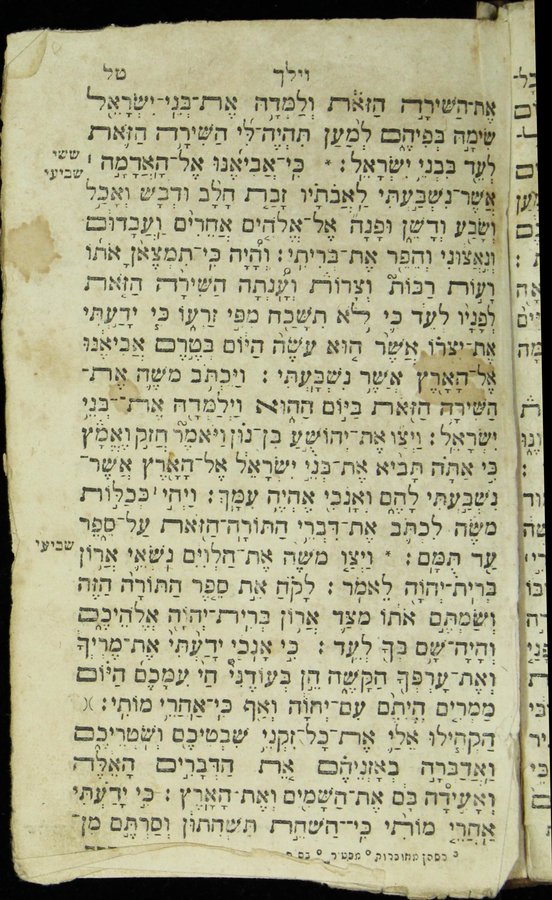 וילך
טל
אֶת־הַשִּׁירָ֣ה הַזֹּ֔את וְלַמְּדָ֥הּ אֶת־בְּנֵֽי־יִשְׂרָאֵ֖ל
שִׂימָ֣הּ בְּפִיהֶ֑ם לְמַ֨עַן תִּהְיֶה־לִּ֜י הַשִּׁירָ֥ה הַזֹּ֛את
לְעֵ֖ד בִּבְנֵ֥י יִשְׂרָאֵֽל : * כִּֽי־אֲבִיאֶ֜נּוּ אֶל־הָאֲדָמָ֣ה ׀
ששי
שביעי
אֲשֶׁר־נִשְׁבַּ֣עְתִּי לַאֲבֹתָ֗יו זָבַ֤ת חָלָב֙ וּדְבַ֔שׁ וְאָכַ֥ל
וְשָׂבַ֖ע וְדָשֵׁ֑ן וּפָנָ֞ה אֶל־אֱלֹהִ֤ים אֲחֵרִים֙ וַעֲבָד֔וּם
וְנִ֣אֲצ֔וּנִי וְהֵפֵ֖ר אֶת־בְּרִיתִֽי : וְ֠הָיָה כִּֽי־תִמְצֶ֨אןָ אֹת֜וֹ
רָע֣וֹת רַבּוֹת֮ וְצָרוֹת֒ וְ֠עָנְתָה הַשִּׁירָ֨ה הַזֹּ֤את
לְפָנָיו֙ לְעֵ֔ד כִּ֛י לֹ֥א תִשָּׁכַ֖ח מִפִּ֣י זַרְע֑וֹ כִּ֧י יָדַ֣עְתִּי
אֶת־יִצְר֗וֹ אֲשֶׁ֨ר ה֤וּא עֹשֶׂה֙ הַיּ֔וֹם בְּטֶ֣רֶם אֲבִיאֶ֔נּוּ
אֶל־הָאָ֖רֶץ אֲשֶׁ֥ר נִשְׁבָּֽעְתִּי : וַיִּכְתֹּ֥ב מֹשֶׁ֛ה אֶת־
הַשִּׁירָ֥ה הַזֹּ֖את בַּיּ֣וֹם הַה֑וּא וַֽיְלַמְּדָ֖הּ אֶת־בְּנֵ֥י
יִשְׂרָאֵֽל : וַיְצַ֞ו אֶת־יְהוֹשֻׁ֣עַ בִּן־נ֗וּן וַיֹּאמֶר֮ חֲזַ֣ק וֶֽאֱמָץ֒
כִּ֣י אַתָּ֗ה תָּבִיא֙ אֶת־בְּנֵ֣י יִשְׂרָאֵ֔ל אֶל־הָאָ֖רֶץ אֲשֶׁר־
נִשְׁבַּ֣עְתִּי לָהֶ֑ם וְאָנֹכִ֖י אֶֽהְיֶ֥ה עִמָּֽךְ : וַיְהִ֣י ׀ כְּכַלּ֣וֹת
מֹשֶׁ֗ה לִכְתֹּ֛ב אֶת־דִּבְרֵ֥י הַתּוֹרָֽה־הַזֹּ֖את עַל־סֵ֑פֶר
עַ֖ד תֻּמָּֽם : * וַיְצַ֤ו מֹשֶׁה֙ אֶת־הַלְוִיִּ֔ם נֹֽשְׂאֵ֛י אֲר֥וֹן
שביעי
בְּרִית־יְהוָ֖ה לֵאמֹֽר : לָקֹ֗חַ אֵ֣ת סֵ֤פֶר הַתּוֹרָה֙ הַזֶּ֔ה
וְשַׂמְתֶּ֣ם אֹת֔וֹ מִצַּ֛ד אֲר֥וֹן בְּרִית־יְהוָ֖ה אֱלֹהֵיכֶ֑ם
וְהָֽיָה־שָׁ֥ם בְּךָ֖ לְעֵֽד : כִּ֣י אָנֹכִ֤י יָדַ֙עְתִּי֙ אֶֽת־מֶרְיְךָ֔
וְאֶֽת־עָרְפְּךָ֖ הַקָּשֶׁ֑ה הֵ֣ן בְּעוֹדֶנִּי֩ חַ֨י עִמָּכֶ֜ם הַיּ֗וֹם
מַמְרִ֤ים הֱיִתֶם֙ עִם־יְהוָ֔ה וְאַ֖ף כִּי־אַחֲרֵ֥י מוֹתִֽי :
הַקְהִ֧ילוּ אֵלַ֛י אֶת־כָּל־זִקְנֵ֥י שִׁבְטֵיכֶ֖ם וְשֹׁטְרֵיכֶ֑ם
וַאֲדַבְּרָ֣ה בְאָזְנֵיהֶ֗ם אֵ֚ת הַדְּבָרִ֣ים הָאֵ֔לֶּה
וְאָעִ֣ידָה בָּ֔ם אֶת־הַשָּׁמַ֖יִם וְאֶת־הָאָֽרֶץ : כִּ֣י יָדַ֗עְתִּי
אַחֲרֵ֤י מוֹתִי֙ כִּֽי־הַשְׁחֵ֣ת תַּשְׁחִת֔וּן וְסַרְתֶּ֣ם מִן־